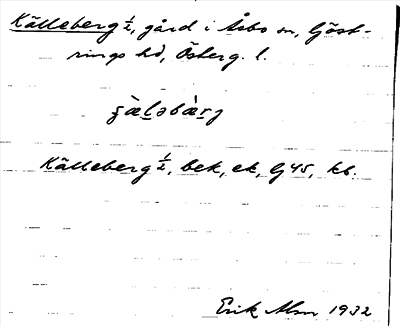 Källeberg ½, gård i Åsbo sn, Göst-
rings hd, Österg. l.
Källeberg ½, bek, ek, G45, kb.
Erik Alm 1932